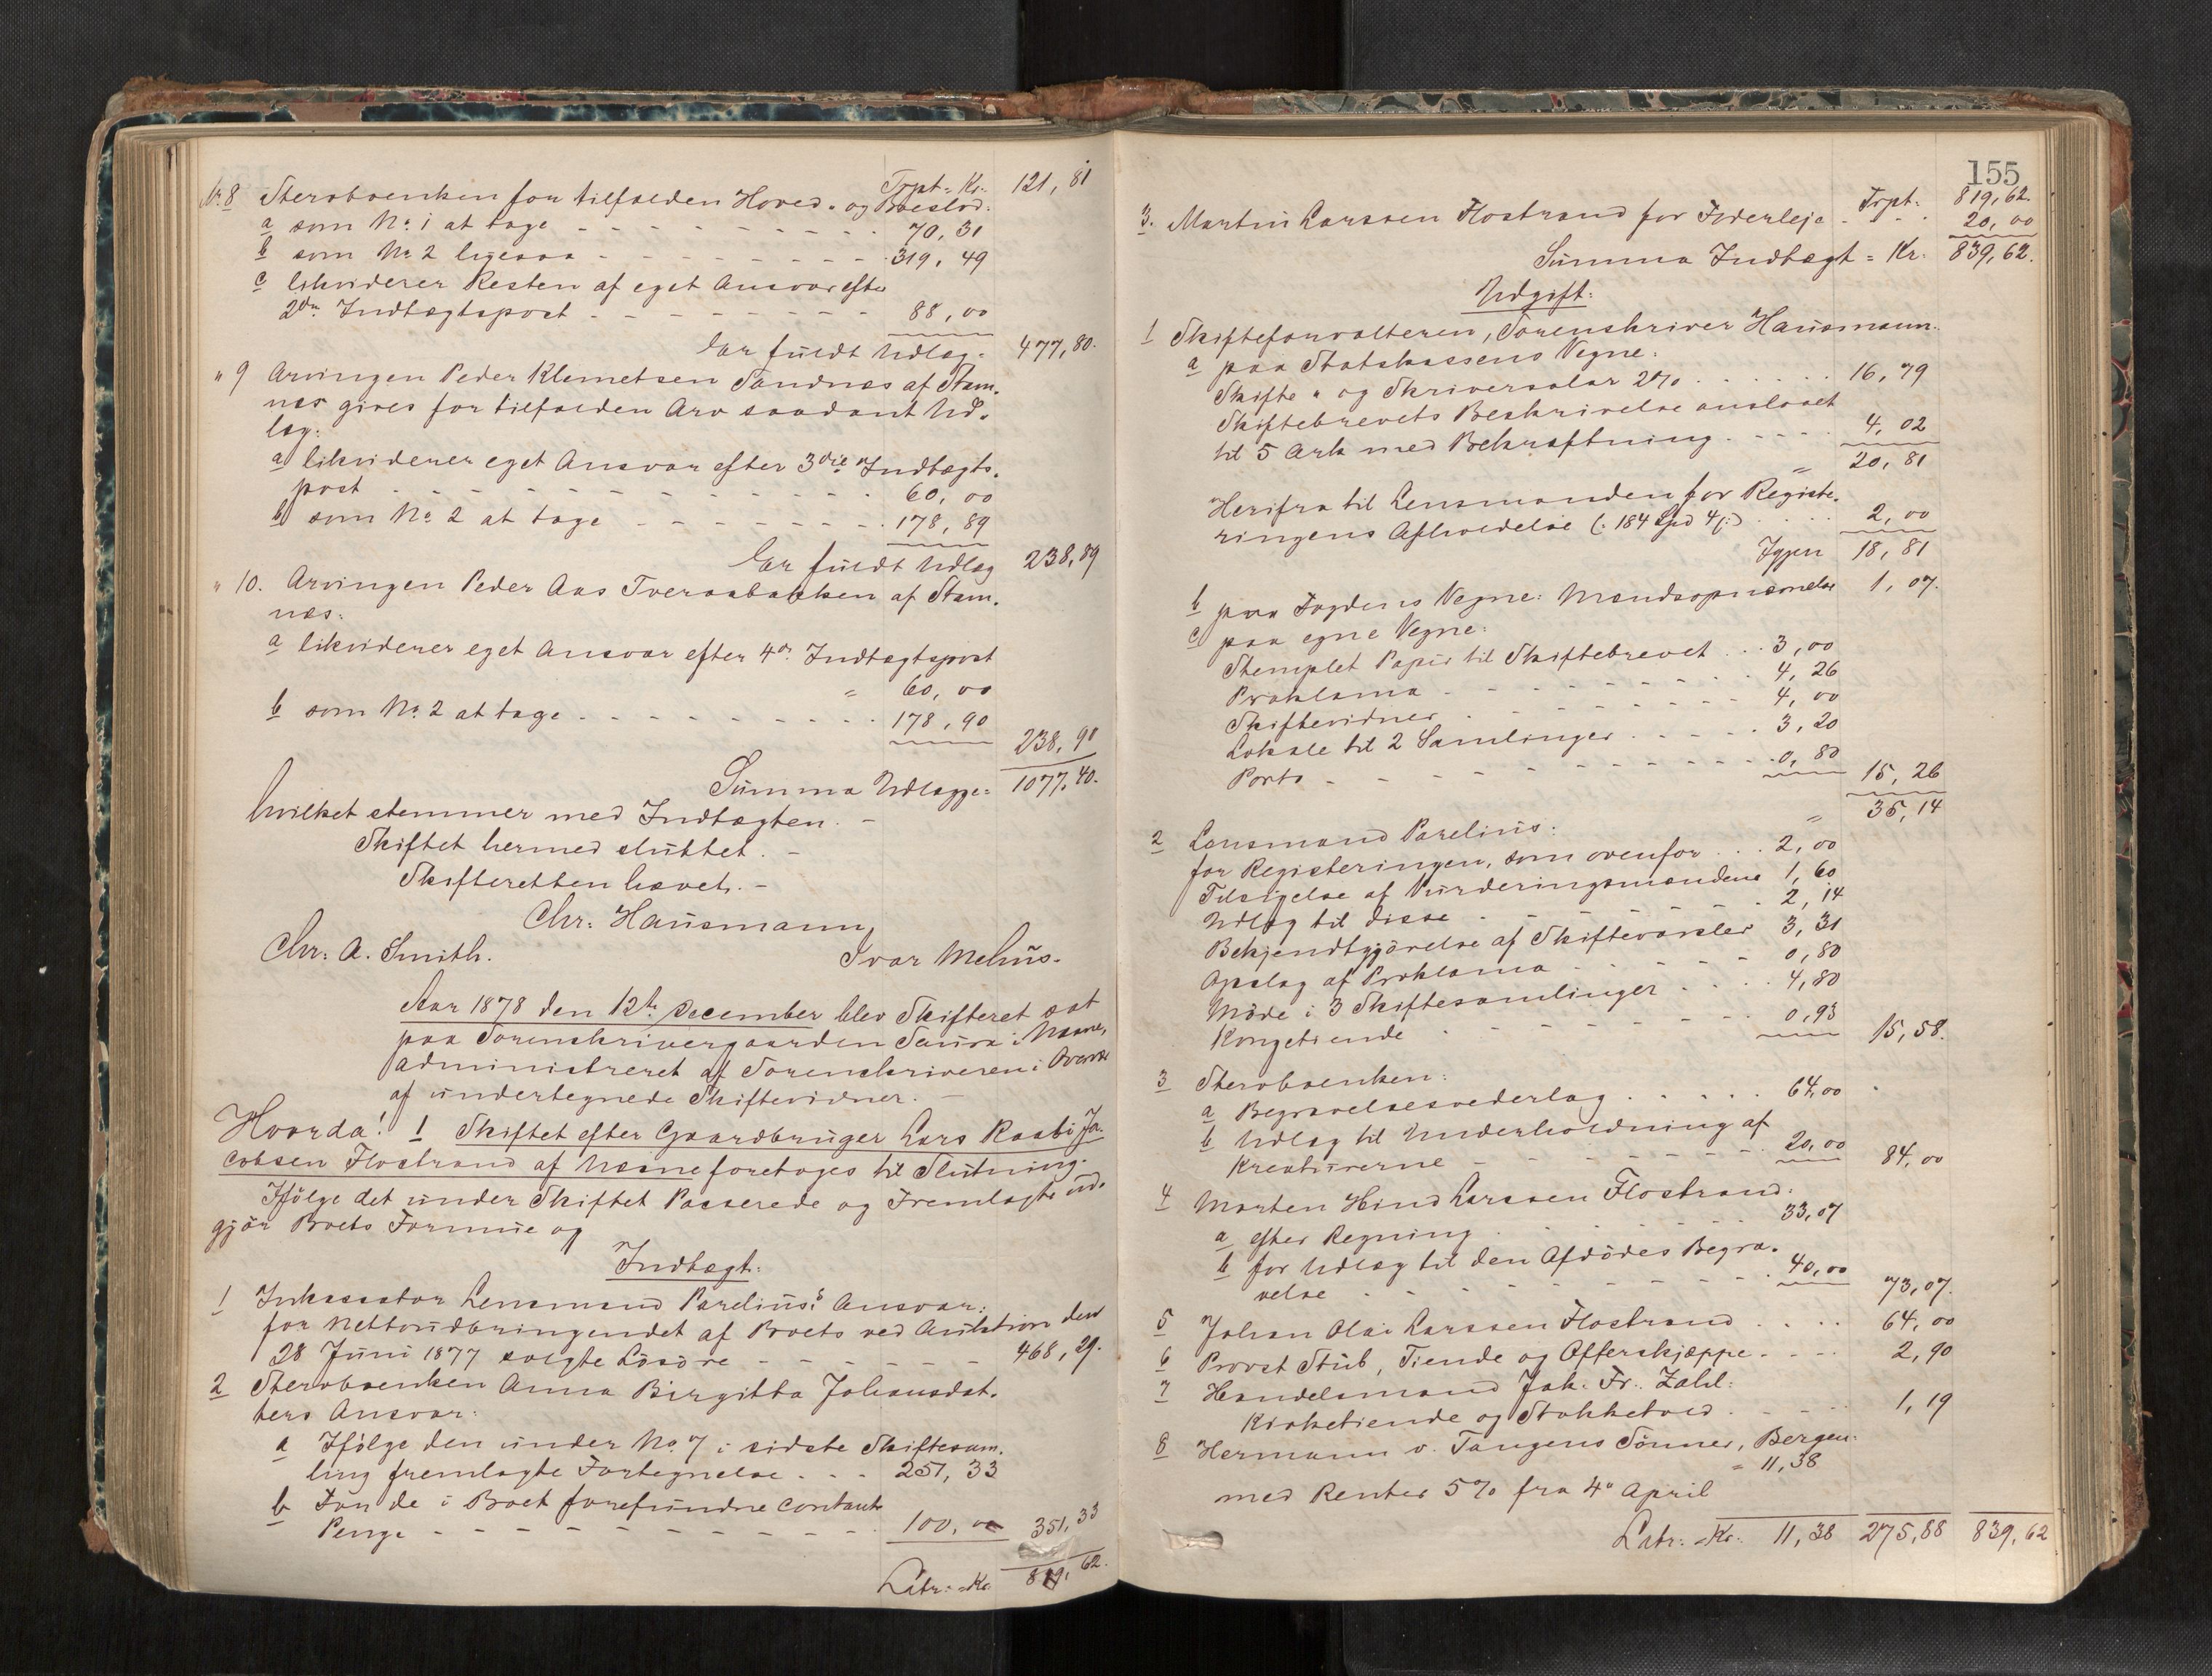 Trpt = Kr. 121,81
No 8 Stervboenken for tilfalden Hoved- og Boeslod:
a som No 1 at tage - - - 70,31
b som No 2 ligesaa - - - 319,49
c likviderer Resten af eget Ansvar efter
2den Indtægtspost - - - 88,00
Er fuldt Udlæg. 477,80.
" 9 Arvingen Peder Klemetsen Sandnæs af Stam-
næs gives for tilfalden Arv saadant Ud-
læg:
a likviderer eget Ansvar efter 3die Indtægts-
post - - - 60,00
b som No 2 at tage - - - 178,89
Er fuldt Udlæg 238,89
" 10. Arvingen Peder Aas Tveraabakken af Stam-
næs:
a likviderer eget Ansvar efter 4de Indtægtspost
= 60,00
b som No 2 at tage - - - 178,90
238,90
Summa Udlægge = 1077,40.
hvilket stemmer med Indtægten. -
Skiftet hermed sluttet. -
Skifteretten hævet. -
Chr: Hausmann
Chr: A. Smith. Ivar Melhus.
Aar 1878 den 12te December blev Skifteret sat
paa Sorenskrivergaarden Saura i Næsne,
administreret af Sorenskriveren i Overvær
af undertegnede Skiftevidner. -
Hvorda! 1 Skiftet efter Gaardbruger Lars Raabi Ja-
cobsen Flostrand af Næsne foretoges til Slutning.
Ifølge det under Skiftet Passerede og Fremlagte ud-
gjør Boets Formue og
Indtægt:
1 Inkassator Lensmand Parelius's Ansvar:
for Nettoudbringendet af Boets ved Auktion den
28 Juni 1877 solgte Løsøre - - - 468,29.
2 Stervboenken Anna Birgitta Johansdat-
ters Ansvar:
a Ifølge den under No 7 i sidste Skiftesam-
ling fremlagte Fortegnelse . . . 251,33
b For de i Boet forefundne contante
Penge - - - 100,00 351,33
Latr: = Kr. 819,62.
155
Trpt: 819,62.
3. Martin Larssen Flostrand for Foderleje - - - 20,00
Summa Indtægt = Kr. 839,62.
Udgift:
1 Skifteforvalteren, Sorenskriver Hausmann.
a paa Statskassens Vegne:
Skifte- og Skriversalær 2% . . . 16,79
Skiftebrevets Beskrivelse anslaaet
til 5 Ark med Bekræftning . . . 4,02
= 20,81
Herifra til Lensmanden for Registe-
ringens Afholdelse (: 184 Lpd 4 :) . . . 2,00
Igjen 18,81
b paa Fogdens Vegne: Mændsopnævnelse 1,07.
c paa egne Vegne:
Stemplet Papir til Skiftebrevet . . . 3,00
Proklama - - - 4,26
Skiftevidner - - - 4,00
Lokale til 2 Samlinger - - - 3,20
Porto - - - 0,80 15,26
= 35,14
2 Lensmand Parelius:
for Registeringen, som ovenfor . . . 2,00
Tilsigelse af Vurderingsmændene 1,60
Udlæg til disse - - - 2,14
Bekjendtgjørelse af Skiftevarsler 3,31
Opslag af Proklama - - - 0,80
Møde i 3 Skiftesamlinger . . . 4,80
Kongetiende - - - 0,93 15,58.
3 Stervboenken:
a Begravelsesvederlag . . . 64,00
b Udlæg til Underholdning af
Kreaturerne - - - 20,00 84,00
4 Morten Hind Larssen Flostrand:
a efter Regning . . . 33,07
b for Udlæg til den Afdødes Begra-
velse - - - 40,00 73,07.
5 Johan Olai Larssen Flostrand . . . 64,00
6 Provst Stub, Tiende og Offerskjæppe - - - 2,90
7 Handelsmand Joh. Fr. Zahl:
Kirketiende og Stokketold - - - 1,19
8 Hermann v. Tangens Sønner, Bergen:
= 11,38
med Renter 5% fra 4de April
Latr: = Kr. 11,38 275,88 839,62